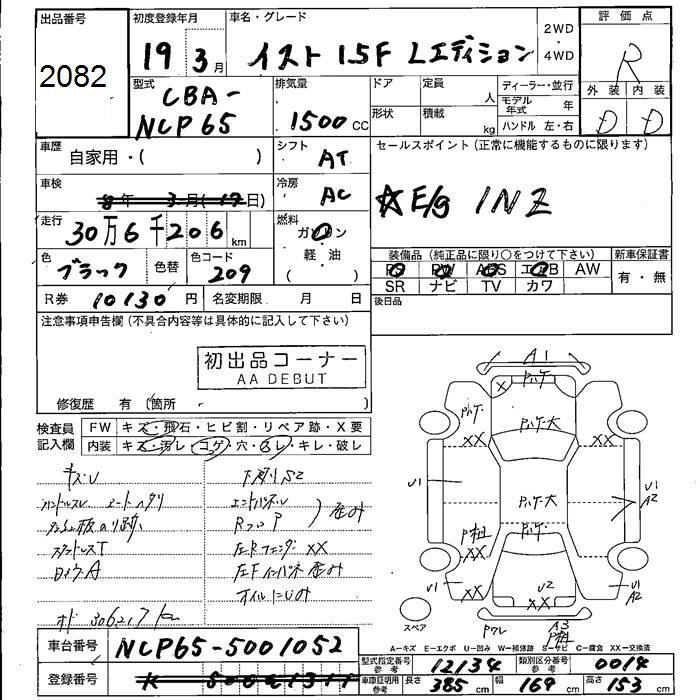 出品番号
2082
初度登録年月
19 3月
車名・グレード
イスト 1.5F Lエディション
2WD
・
4WD
評価点
R
外装 内装
D D
型式
CBA-
NCP65
排気量
1500 CC
ドア
定員
人
形状
積載
kg
ディーラー・並行
モデル年式 年
ハンドル 左・右
車歴
自家用・( )
シフト
AT
セールスポイント(正常に機能するものに限ります)
☆E/g 1NZ
車検
冷房
AC
走行
30万6千206 km
燃料
ガソリン
・
軽油
( )
色
ブラック
色替
色コード
209
装備品(純正品に限り○をつけて下さい)
PS PW ABS エアB AW
SR ナビ TV カワ
新車保証書
有・無
R券 10130円
名変期限 月 日
後日品
注意事項申告欄(不具合内容等は具体的に記入して下さい)
初出品コーナー
AA DEBUT
修復歴 有(箇所 )
検査員
記入欄
FW キズ・飛石・ヒビ割・リペア跡・X要
内装 キズ・汚レ・コゲ・穴・スレ・キレ・破レ
キズU
ハンドルスレ シートヘタリ
下廻りS2
エンドパネル
RフロアP
左Rフェンダー XX
オイルにじみ
オド 306217km
A1
XX
P大
U1
U1
A2
P粗
XX
U2
XX
U1
U1
A2
A3
P粗
スペア
A-キズ E-エクボ U-凹み W-補修跡 S-サビ C-腐食 XX-交換済
車台番号 NCP65-5001052
登録番号
型式指定番号
参考
12134
類別区分番号
参考
0014
車庫証明用
参考
長さ 385 cm 幅 169 cm 高さ 153 cm